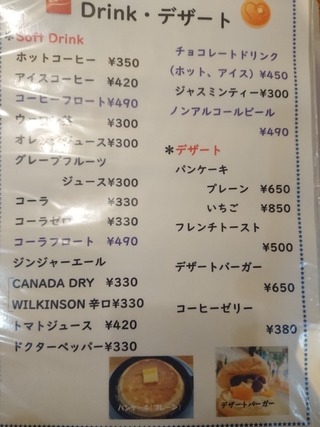 Drink・デザート
*Soft Drink
ホットコーヒー ¥350
アイスコーヒー ¥420
コーヒーフロート¥490
ウーロン茶 ¥300
オレンジジュース¥300
グレープフルーツ
ジュース¥300
コーラ ¥330
コーラゼロ ¥330
コーラフロート ¥490
ジンジャーエール
CANADA DRY ¥330
WILKINSON 辛口¥330
トマトジュース ¥420
ドクターペッパー¥330
チョコレートドリンク
(ホット、アイス) ¥450
ジャスミンティー¥300
ノンアルコールビール
¥490
*デザート
パンケーキ
プレーン ¥650
いちご ¥850
フレンチトースト
¥500
デザートバーガー
¥650
コーヒーゼリー
¥380
パンケーキ(プレーン)
デザートバーガー